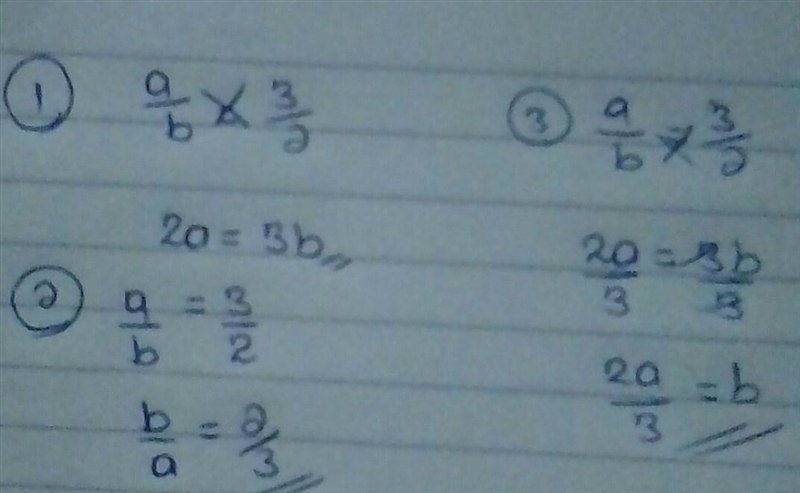 ① a/b × 3/2
2a = 3b,,
② a/b = 3/2
b/a = 2/3 //
③ a/b × 3/2
2a/3 = 3b/3
2a/3 = b //